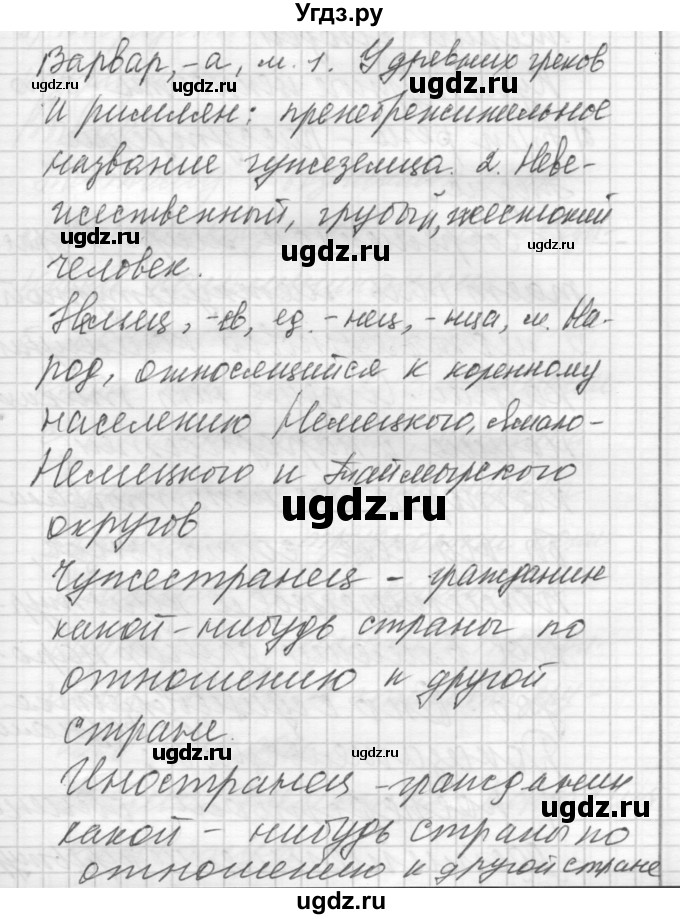 Угдз.ру
Варвар, -а, м. 1. У древних греков
и римлян: пренебрежительное
название чужеземца. 2. Неве-
жественный, грубый, жестокий
человек.
-ев, ед. -нец, -нца, м. На-
род, относящийся к коренному
населению Немецкого, Ямало-
Немецкого и Таймырского
округов
Чужестранец - гражданин
какой-нибудь страны по
отношению к другой
стране.
Иностранец - гражданин
какой - нибудь страны по
отношению к другой стране
ugdz.ru
ugdz.ru
ugdz.ru
ugdz.ru
ugdz.ru
ugdz.ru
ugdz.ru
ugdz.ru
ugdz.ru
ugdz.ru
ugdz.ru
ugdz.ru
ugdz.ru
ugdz.ru